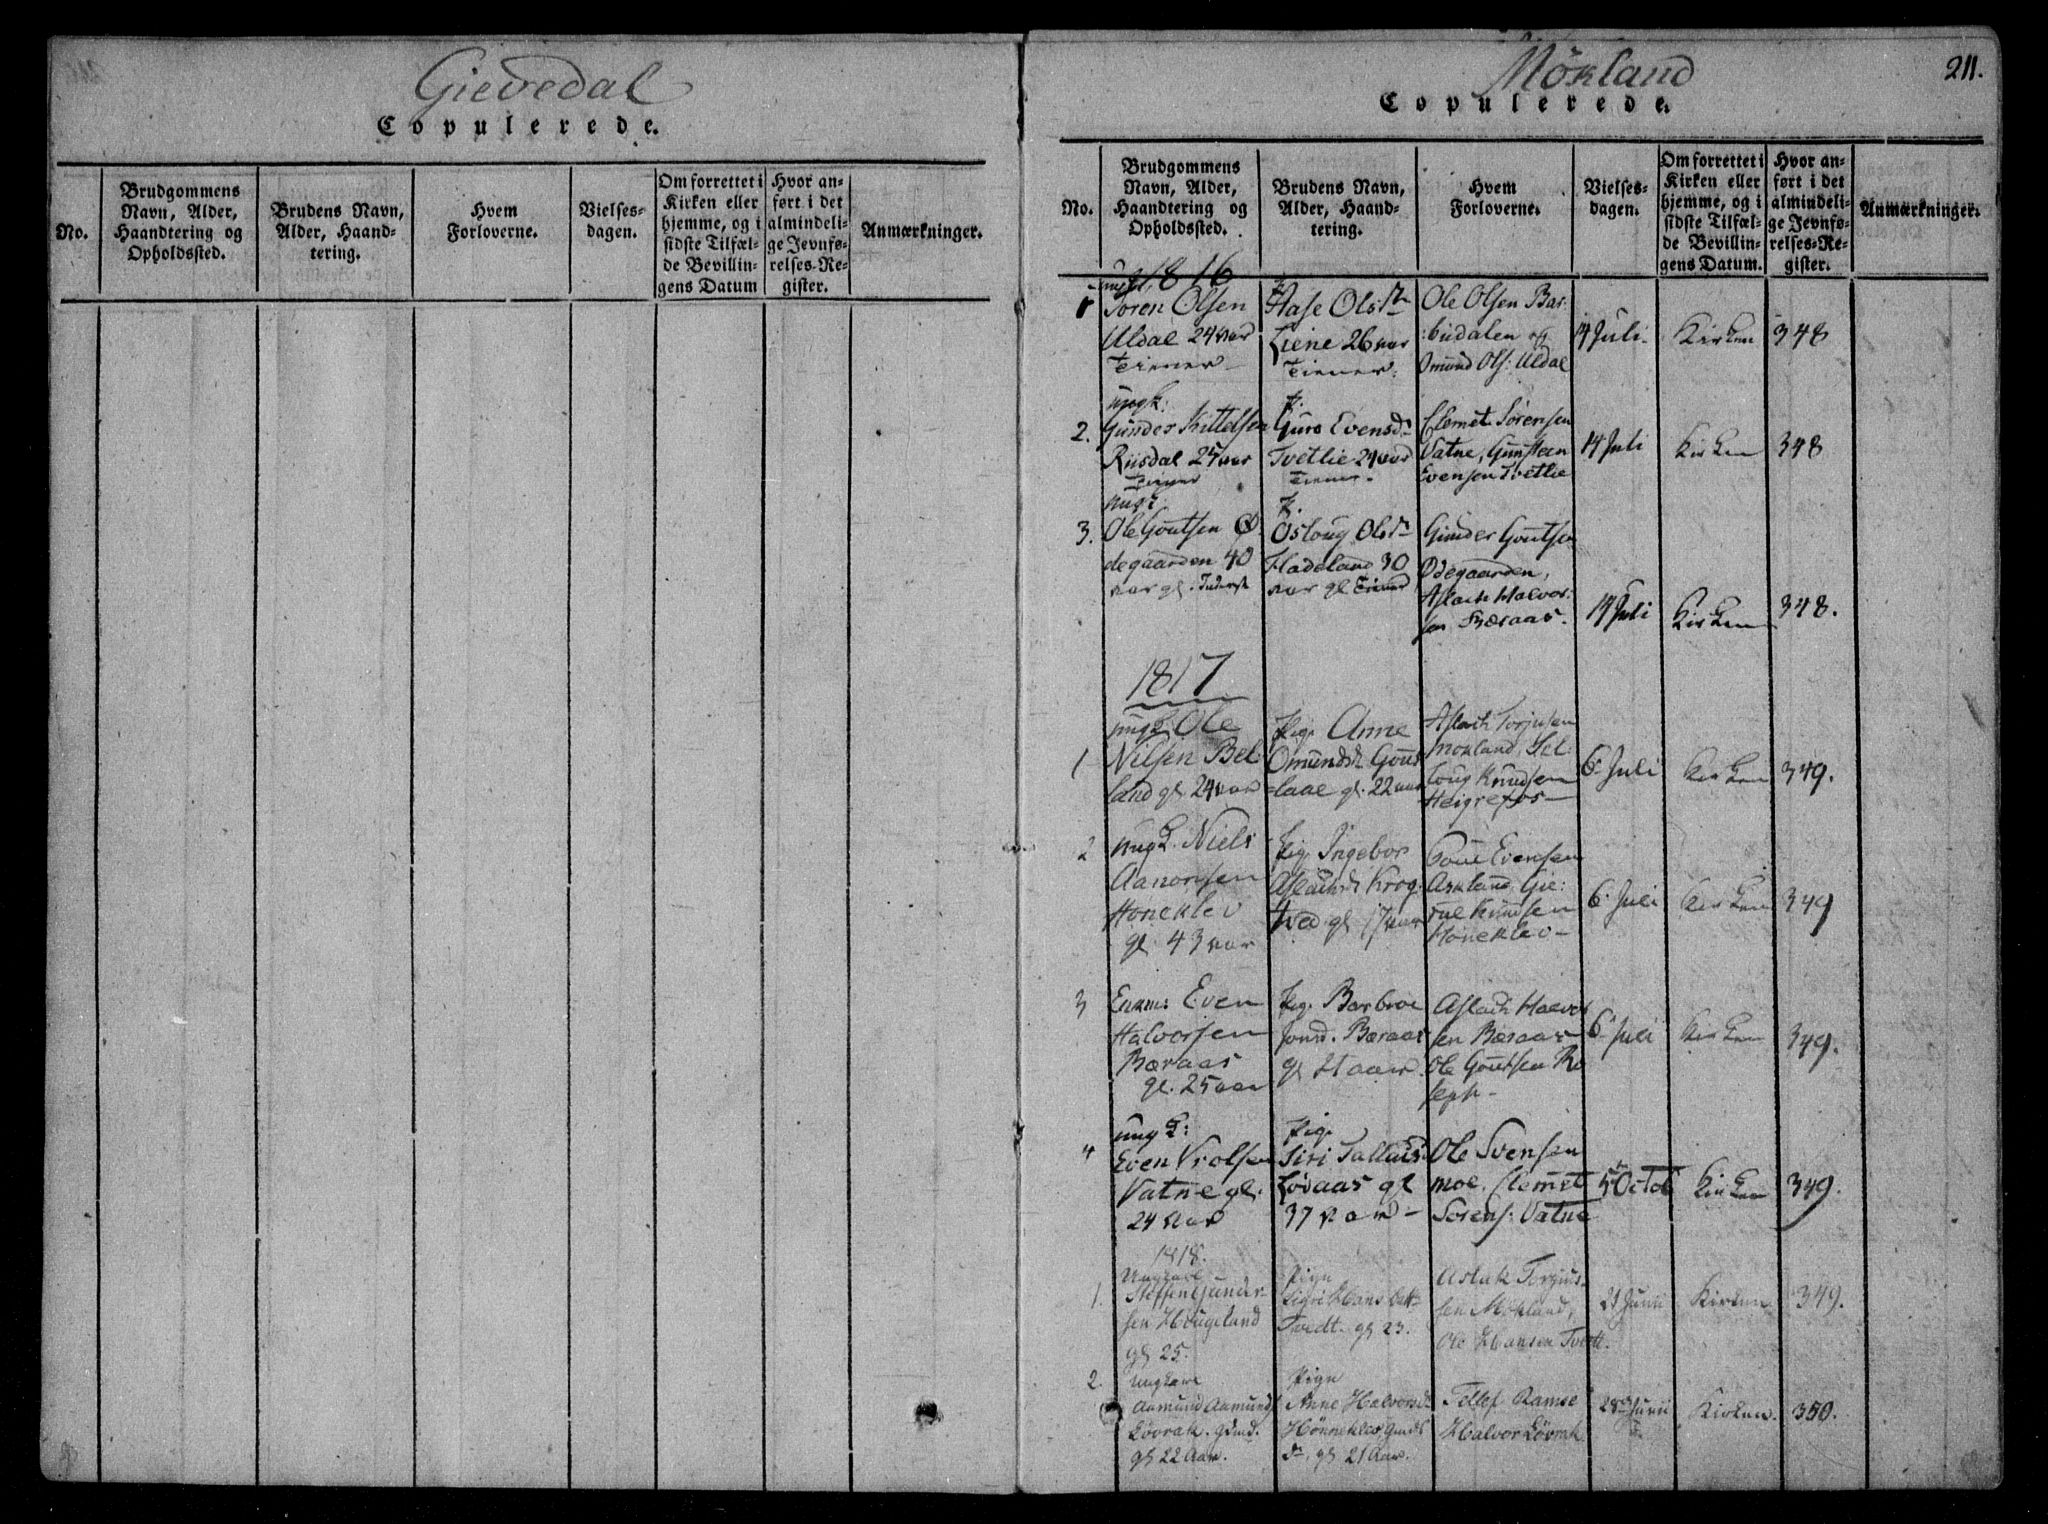 Gievedal
Copulerede.
No.
Brudgommens Navn, Alder, Haandtering og Opholdssted.
Brudens Navn, Alder, Haandtering.
Hvem Forloverne.
Vielsesdagen.
Om forrettet i Kirken eller hjemme, og i sidste Tilfælde Bevillingens Datum
Hvor anført i det almindelige Jevnførelses-Register.
Anmærkninger.
Mökland
211.
Copulerede.
No.
Brudgommens Navn, Alder, Haandtering og Opholdssted.
Brudens Navn, Alder, Haandtering.
Hvem Forloverne.
Vielsesdagen.
Om forrettet i Kirken eller hjemme, og i sidste Tilfælde Bevillingens Datum.
Hvor anført i det almindelige Jevnførelses-Register.
Anmærkninger.
1816
Sören Olsen
Uldal 24 aar
Tiener
Aase Olsdr
Liene 26 aar
Tiener
Ole Olsen Bar
:budalen og
Omund Ols: Uldal
14 Juli
Kirken
348
2.
ungk:
Gunder Kittelsen
Risdal 25 aar
Tiener
p.
Guro Evensd
Tvetlie 24 aar
Tiener
Clemet Sörensen
Vatne, Gunsteen
Evensen Tvetlie
14 Juli
Kirken
348
3.
Ole Goutsen Ø
degaarden 40
aar gl. Inderst
p.
Osloug Olsdr
Fladeland 30
aar gl Tiener
Gunder Goutsen
Ødegaarden,
Aslach Halvor:
sen Bæraas.
14 Juli
Kirken
348.
1817
1
ungk. Ole
Nilsen Bel:
land gl 24 aar
Pig. Anne
Omundsd. Gous
=laae gl. 22 aar
Aslach Torjusen
Mokland, Sel:
loug Knudsen
Heigrefos
6 Juli
Kirken
349.
2
ungk. Niels
Aanonsen
Honeklev
gl. 43 aar
Pig. Ingebor
Aslachsd. Krog
tved gl 17 aar
Evensen
Askland, Gie:
rul Knudsen
Honeklev
6. Juli
Kirken
349
3
Enkem: Even
Halvorsen
Bæraas
gl. 25 aar
Pig. Barbroe
Jonsd. Bæraas
gl
Aslach Halvor
sen Bæraas
Ole Goutsen Ro
seph
6. Juli
Kirken
349.
4
ungk:
Even Vrolsen
Vatne gl.
24 aar
Pig.
Siri Tallaisd
Lövaas gl
37 aar
Ole Svensen
Moe. Clemet
Sörens: Vatne
5 Octob
Kirken
349.
1818.
1.
Ungkarl
Steffen Gunder-
sen Hougeland
gl 25.
Pigen
Sigri Hans Datt
Tvedt. gl 23.
Aslak Torgius-
sen Mökland,
Ole Hansen Tvedt.
21 Junii
Kirken
349.
2.
Ungkarl
Aamund Aamunds
Lövrak. Gdmd.
gl 22 Aar.
Pigen
Anne Halvorsdr
Hönneklev, Gmds
Dr, gl 21 Aar.
Tellef Ramse
Halvor Lövrak
28de Junii
Kirken.
350.